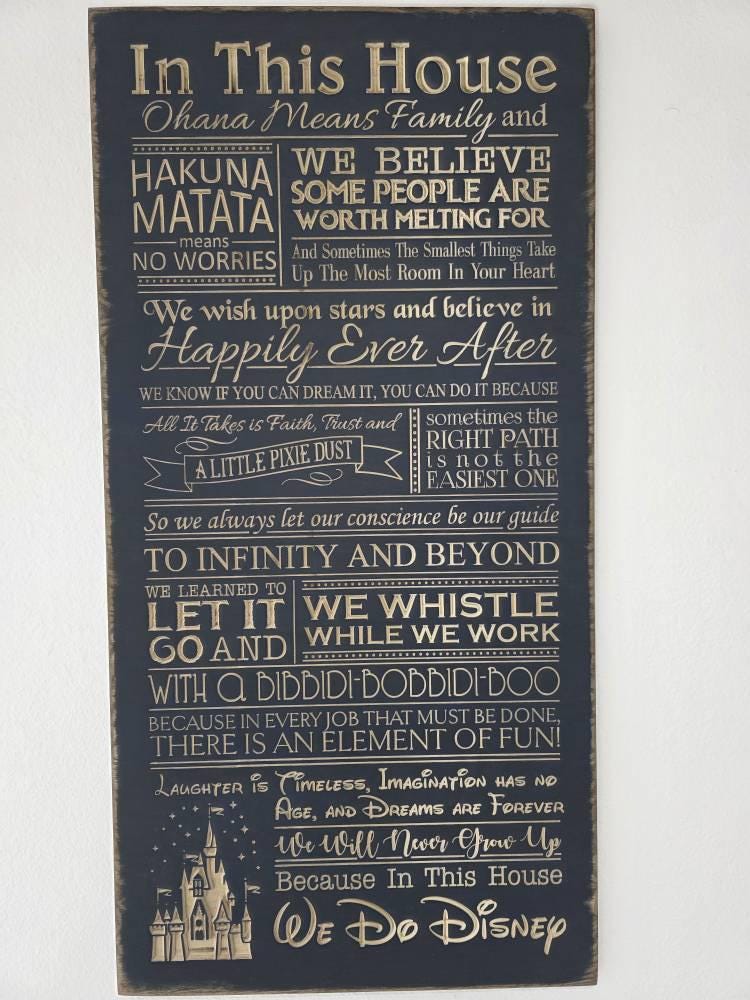 In This House
Ohana Means Family and
HAKUNA
MATATA
means
NO WORRIES
WE BELIEVE
SOME PEOPLE ARE
WORTH MELTING FOR
And Sometimes The Smallest Things Take
Up The Most Room In Your Heart
We wish upon stars and believe in
Happily Ever After
WE KNOW IF YOU CAN DREAM IT, YOU CAN DO IT BECAUSE
All It Takes is Faith, Trust and
A LITTLE PIXIE DUST
sometimes the
RIGHT PATH
is not the
EASIEST ONE
So we always let our conscience be our guide
TO INFINITY AND BEYOND
WE LEARNED TO
LET IT
GO AND
WE WHISTLE
WHILE WE WORK
WITH a BIBBIDI-BOBBIDI-BOO
BECAUSE IN EVERY JOB THAT MUST BE DONE,
THERE IS AN ELEMENT OF FUN!
Laughter is Timeless, Imagination has no
Age, and Dreams are Forever
We Will Never Grow Up
Because In This House
We Do Disney